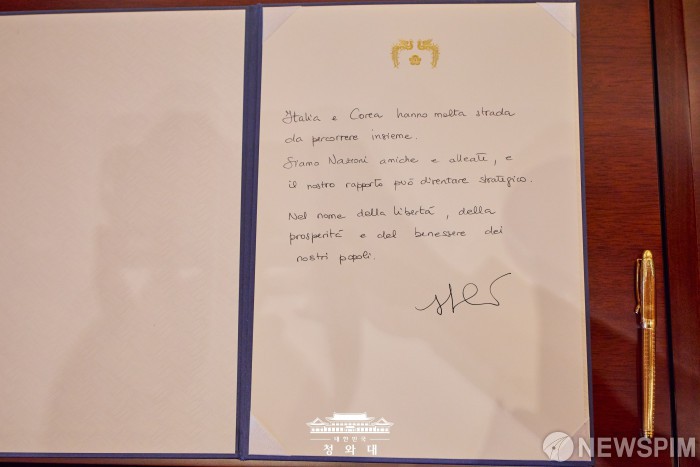 Italia e Corea hanno molta strada
da percorrere insieme.
Siamo Nazioni amiche e alleate, e
il nostro rapporto può diventare strategico.
Nel nome della libertà, della
prosperità e del benessere dei
nostri popoli.
대한민국
청와대
NEWSPIM